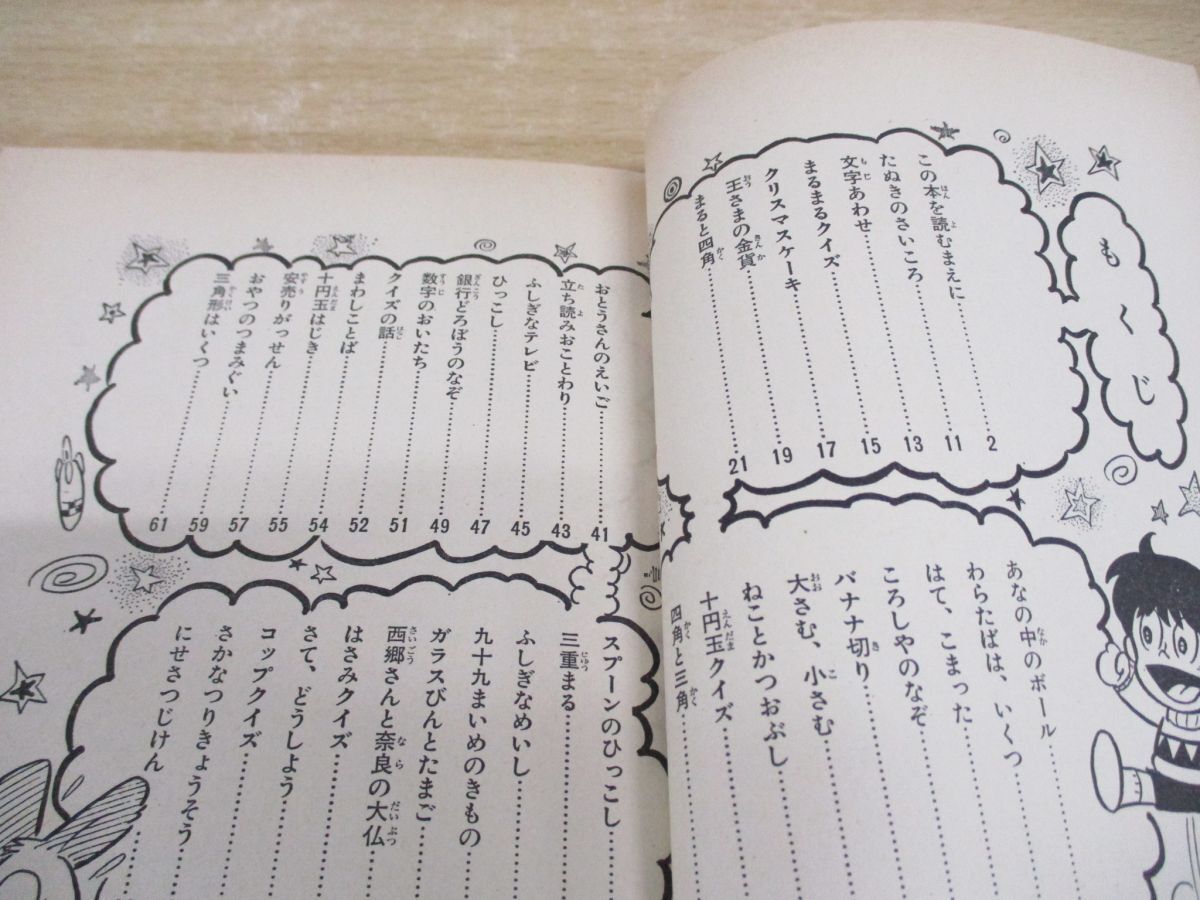 もくじ
この本を読むまえに……………2
たぬきのさいころ……………11
文字あわせ……………13
まるまるクイズ……………15
クリスマスケーキ……………17
王さまの金貨……………19
まると四角……………21
あなの中のボール……………
わらたばは、いくつ……………
はて、こまった……………
ころしやのなぞ……………
バナナ切り……………
大さむ、小さむ……………
ねことかつおぶし……………
十円玉クイズ……………
四角と三角……………
おとうさんのえいご……………41
立ち読みおことわり……………43
ふしぎなテレビ……………45
ひっこし……………47
銀行どろぼうのなぞ……………49
数字のおいたち……………51
クイズの話……………52
まわしことば……………54
十円玉はじき……………55
安売りがっせん……………57
おやつのつまみぐい……………59
三角形はいくつ……………61
スプーンのひっこし……………
三重まる……………
ふしぎなめいし……………
九十九まいめのきもの……………
ガラスびんとたまご……………
西郷さんと奈良の大仏……………
はさみクイズ……………
さて、どうしよう……………
コップクイズ……………
さかなつりきょうそう……………
にせさつじけん……………